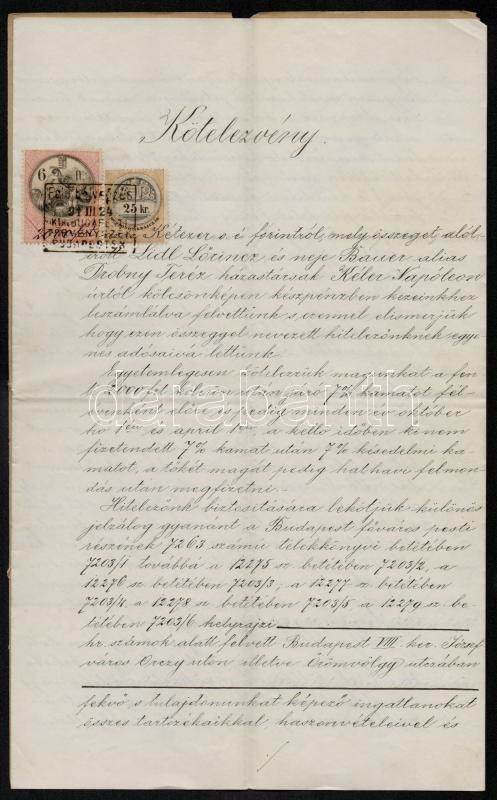 Kötelezvény.
6 fl.
25 kr.
91 III 24
BUDAPESTEN
Kétezer o. é. forintról, mely összeget, alól-
írott Lidl Lőrincz és neje Bauer alias
Drobny Teréz házastársak Kéler Napóleon
úrtól kölcsönképen készpénzben kezeinkhez
leszámlálva felvettünk s ezennel elismerjük
hogy ezen összeggel nevezett hitelezőnknek egye-
nes adósaivá lettünk.
Egyetemlegesen kötelezzük magunkat a fen-
ti 2000 frt kölcsön után járó 7% kamatot fél-
évenként előre és pedig minden év október
hó 1én és april 1én, a kellő időben ki nem
fizetendett 7% kamat után 7% késedelmi ka-
matot, a tőkét magát pedig hat havi felmon-
dás után megfizetni.-
Hitelezőnk biztosítására lekötjük különös
jelzálog gyanánt a Budapest főváros pesti
részének 7263 számú telekkönyvi betétében
7203/1 továbbá a 12275 sz betétében 7203/2, a
12276 sz betétében 7203/3; a 12277 sz. betétében
7203/4, a 12278 sz betétében 7203/5 a 12279 sz. be-
tétében 7203/6 helyrajzi
hr. számok alatt felvett Budapest VIII. ker. József
város Orczy úton illetve Örömvölgy utczában
fekvő, s tulajdonunkat képező ingatlanokat
összes tartozékaikkal, haszonvételeivel és
darabanth